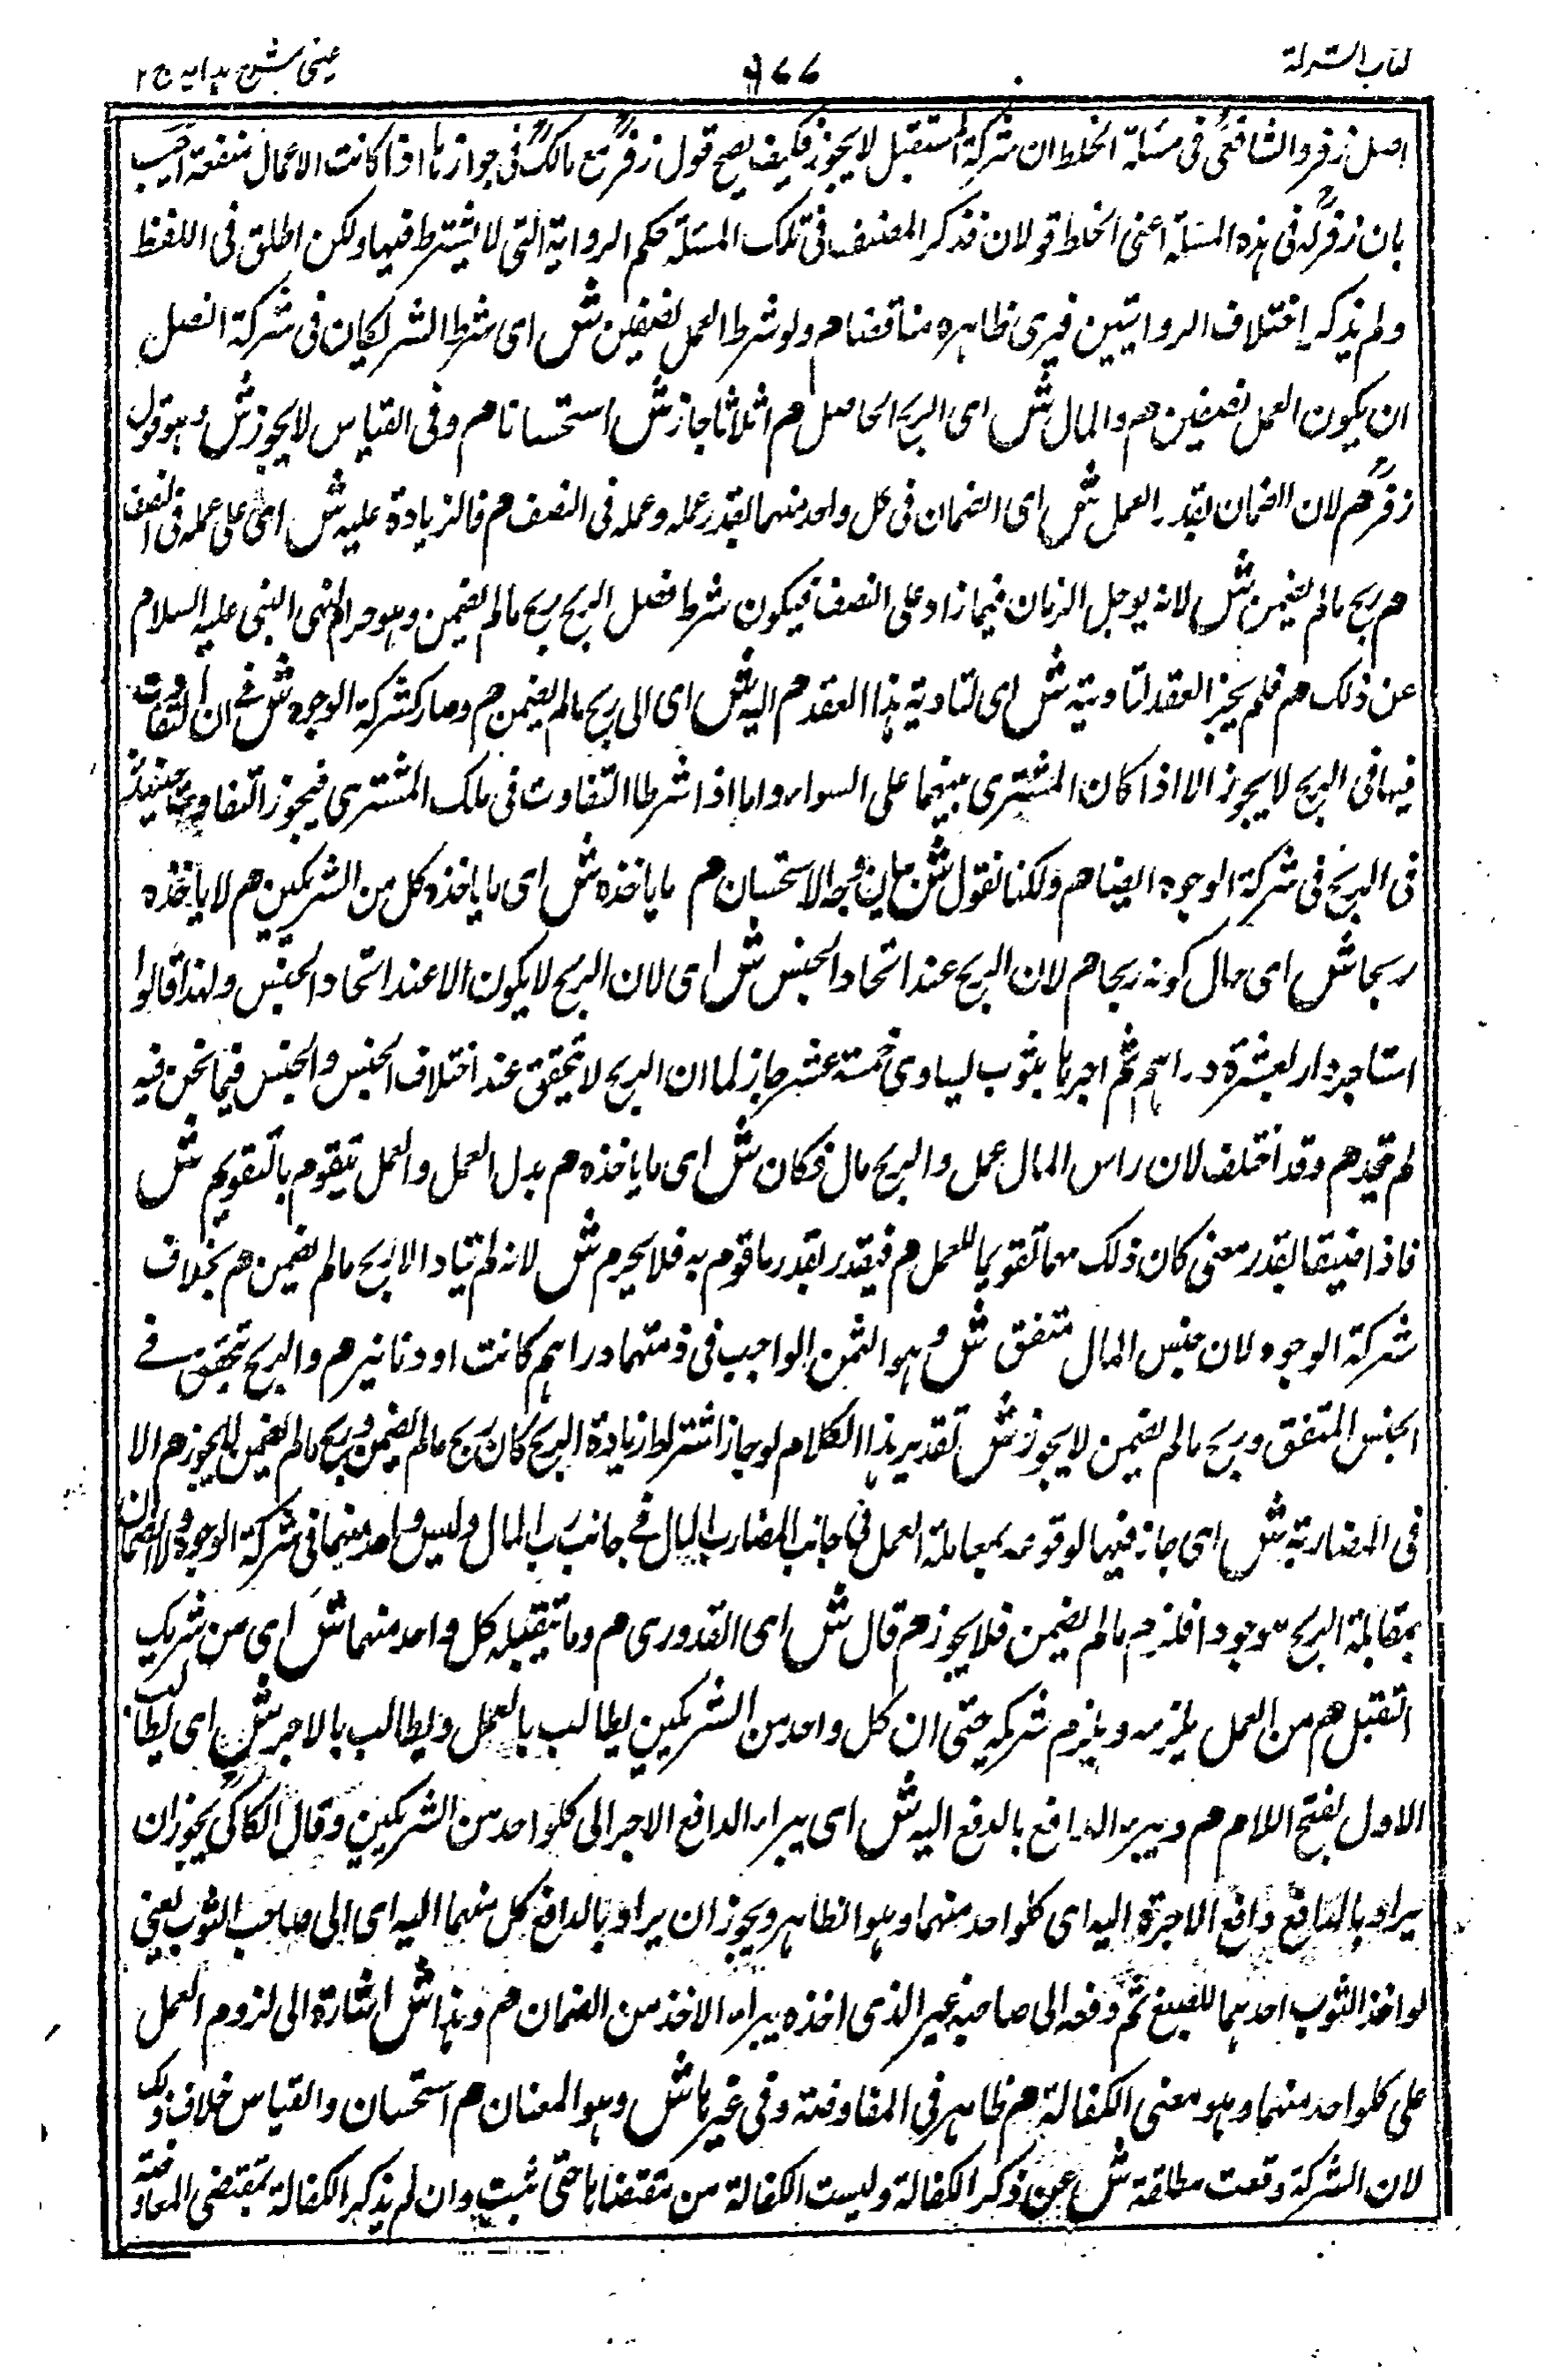 كتاب الشركة
٩٧٧
عينى شرح هدايه ج ٢
اصل زفر والشافعى فى مسئلة الخلط ان شركة التقبل لا يجوز فكيف يصح قول زفر مع مالك فى جوازها اذا كانت الاعمال متفقة اجيب
بان زفر له فى هذه المسئلة اعنى الخلط قولان فذكر المصنف فى تلك المسئلة حكم الرواية التى لا يشترط فيها ولكن اطلق فى اللفظ
ولم يذكر اختلاف الروايتين فيرى ظاهره مناقضا م ولو شرط العمل نصفين ش اى شرط الشريكان فى شركة الفصل
ان يكون العمل نصفين م والمال ش اى الربح الحاصل م اثلاثا جاز ش استحسانا م وفى القياس لا يجوز ش وهو قول
زفر م لان الضمان بقدر العمل ش اى الضمان فى كل واحد منهما بقدر عمله وعمله فى النصف م فالزيادة عليه ش اى على عمله فى النصف
م ربح ما لم يضمن ش لانه يوجل الزمان فيما زاد على النصف فيكون شرط فضل الربح ربح ما لم يضمن وهو حرام لنهى النبى عليه السلام
عن ذلك م فلم يجز العقد لتاديته ش اى لتادية هذا العقد م اليه ش اى الى ربح ما لم يضمن م وصار كشركة الوجوه ش فى ان التفاوت
فيها فى الربح لا يجوز الا اذا كان المشترى بينهما على السواء واما اذا شرطا التفاوت فى ملك المشترى فيجوز التفاوت حينئذ
فى الربح فى شركة الوجوه ايضا م ولكنا نقول ش وجه الاستحسان م ما ياخذه ش اى ما ياخذه كل من الشريكين م لا ياخذه
ربحا ش اى حال كونه ربحا م لان الربح عند اتحاد الجنس ش اى لان الربح لا يكون الا عند اتحاد الجنس ولهذا قالوا
استاجر دار بعشرة دراهم ثم اجرها بثوب يساوى خمسة عشر جاز لما ان الربح لا يتحقق عند اختلاف الجنس والجنس فيما نحن فيه
لم يتحد م وقد اختلف لان راس المال عمل والربح مال فكان ش اى ما ياخذه م بدل العمل والعمل يتقوم بالتقويم ش
فاذا اضيقا بقدر معنى كان ذلك مما تقويما للعمل م فيقدر بقدر ما قوم به فلا يحرم ش لانه لم يتاد الا ربح ما لم يضمن م بخلاف
شركة الوجوه لان جنس المال متفق ش وهو الثمن الواجب فى ذمتهما دراهم كانت او دنانير م والربح يتحقق فى
الجنس المتفق وربح ما لم يضمن لا يجوز ش تقدير هذا الكلام لو جاز اشتراط زيادة الربح كان ربح ما لم يضمن وربح ما لم يضمن لا يجوز م الا
فى المضاربة ش اى جاز فيها لوقوعه بمعاملة العمل فى جانب المضارب المال فى جانب رب المال وليس واحد منهما فى شركة الوجوه ولا الضمان
بمقابلة الربح موجودا فلزم ما لم يضمن فلا يجوز م قال ش اى القدورى م وما يتقبله كل واحد منهما ش اى من شريك
التقبل م من العمل يلزمه ويلزم شريكه حتى ان كل واحد من الشريكين يطالب بالعمل ويطالب بالاجر ش اى يطالب
الاول بفتح اللام م ويبرء الدافع بالدفع اليه ش اى يبراء الدافع الاجر الى كلواحد من الشريكين وقال الكاكى يجوز ان
يراد بالدافع دافع الاجرة اليه اى كلواحد منهما وهو الظاهر ويجوز ان يراد بالدافع كل منهما اليه اى الى صاحب الثوب يعنى
لو اخذ الثوب احدهما للصبغ ثم دفعه الى صاحبه غير الذى اخذه يبراء الاخذ من الضمان م وهذا ش اشارة الى لزوم العمل
على كلواحد منهما وهو معنى الكفالة م ظاهر فى المفاوضة وفى غيرها ش وهو العنان م استحسان والقياس خلاف ذلك
لان الشركة وقعت مطلقة ش عن ذكر الكفالة وليست الكفالة من مقتضاها حتى ثبت وان لم يذكر الكفالة بمقتضى المفاوضة